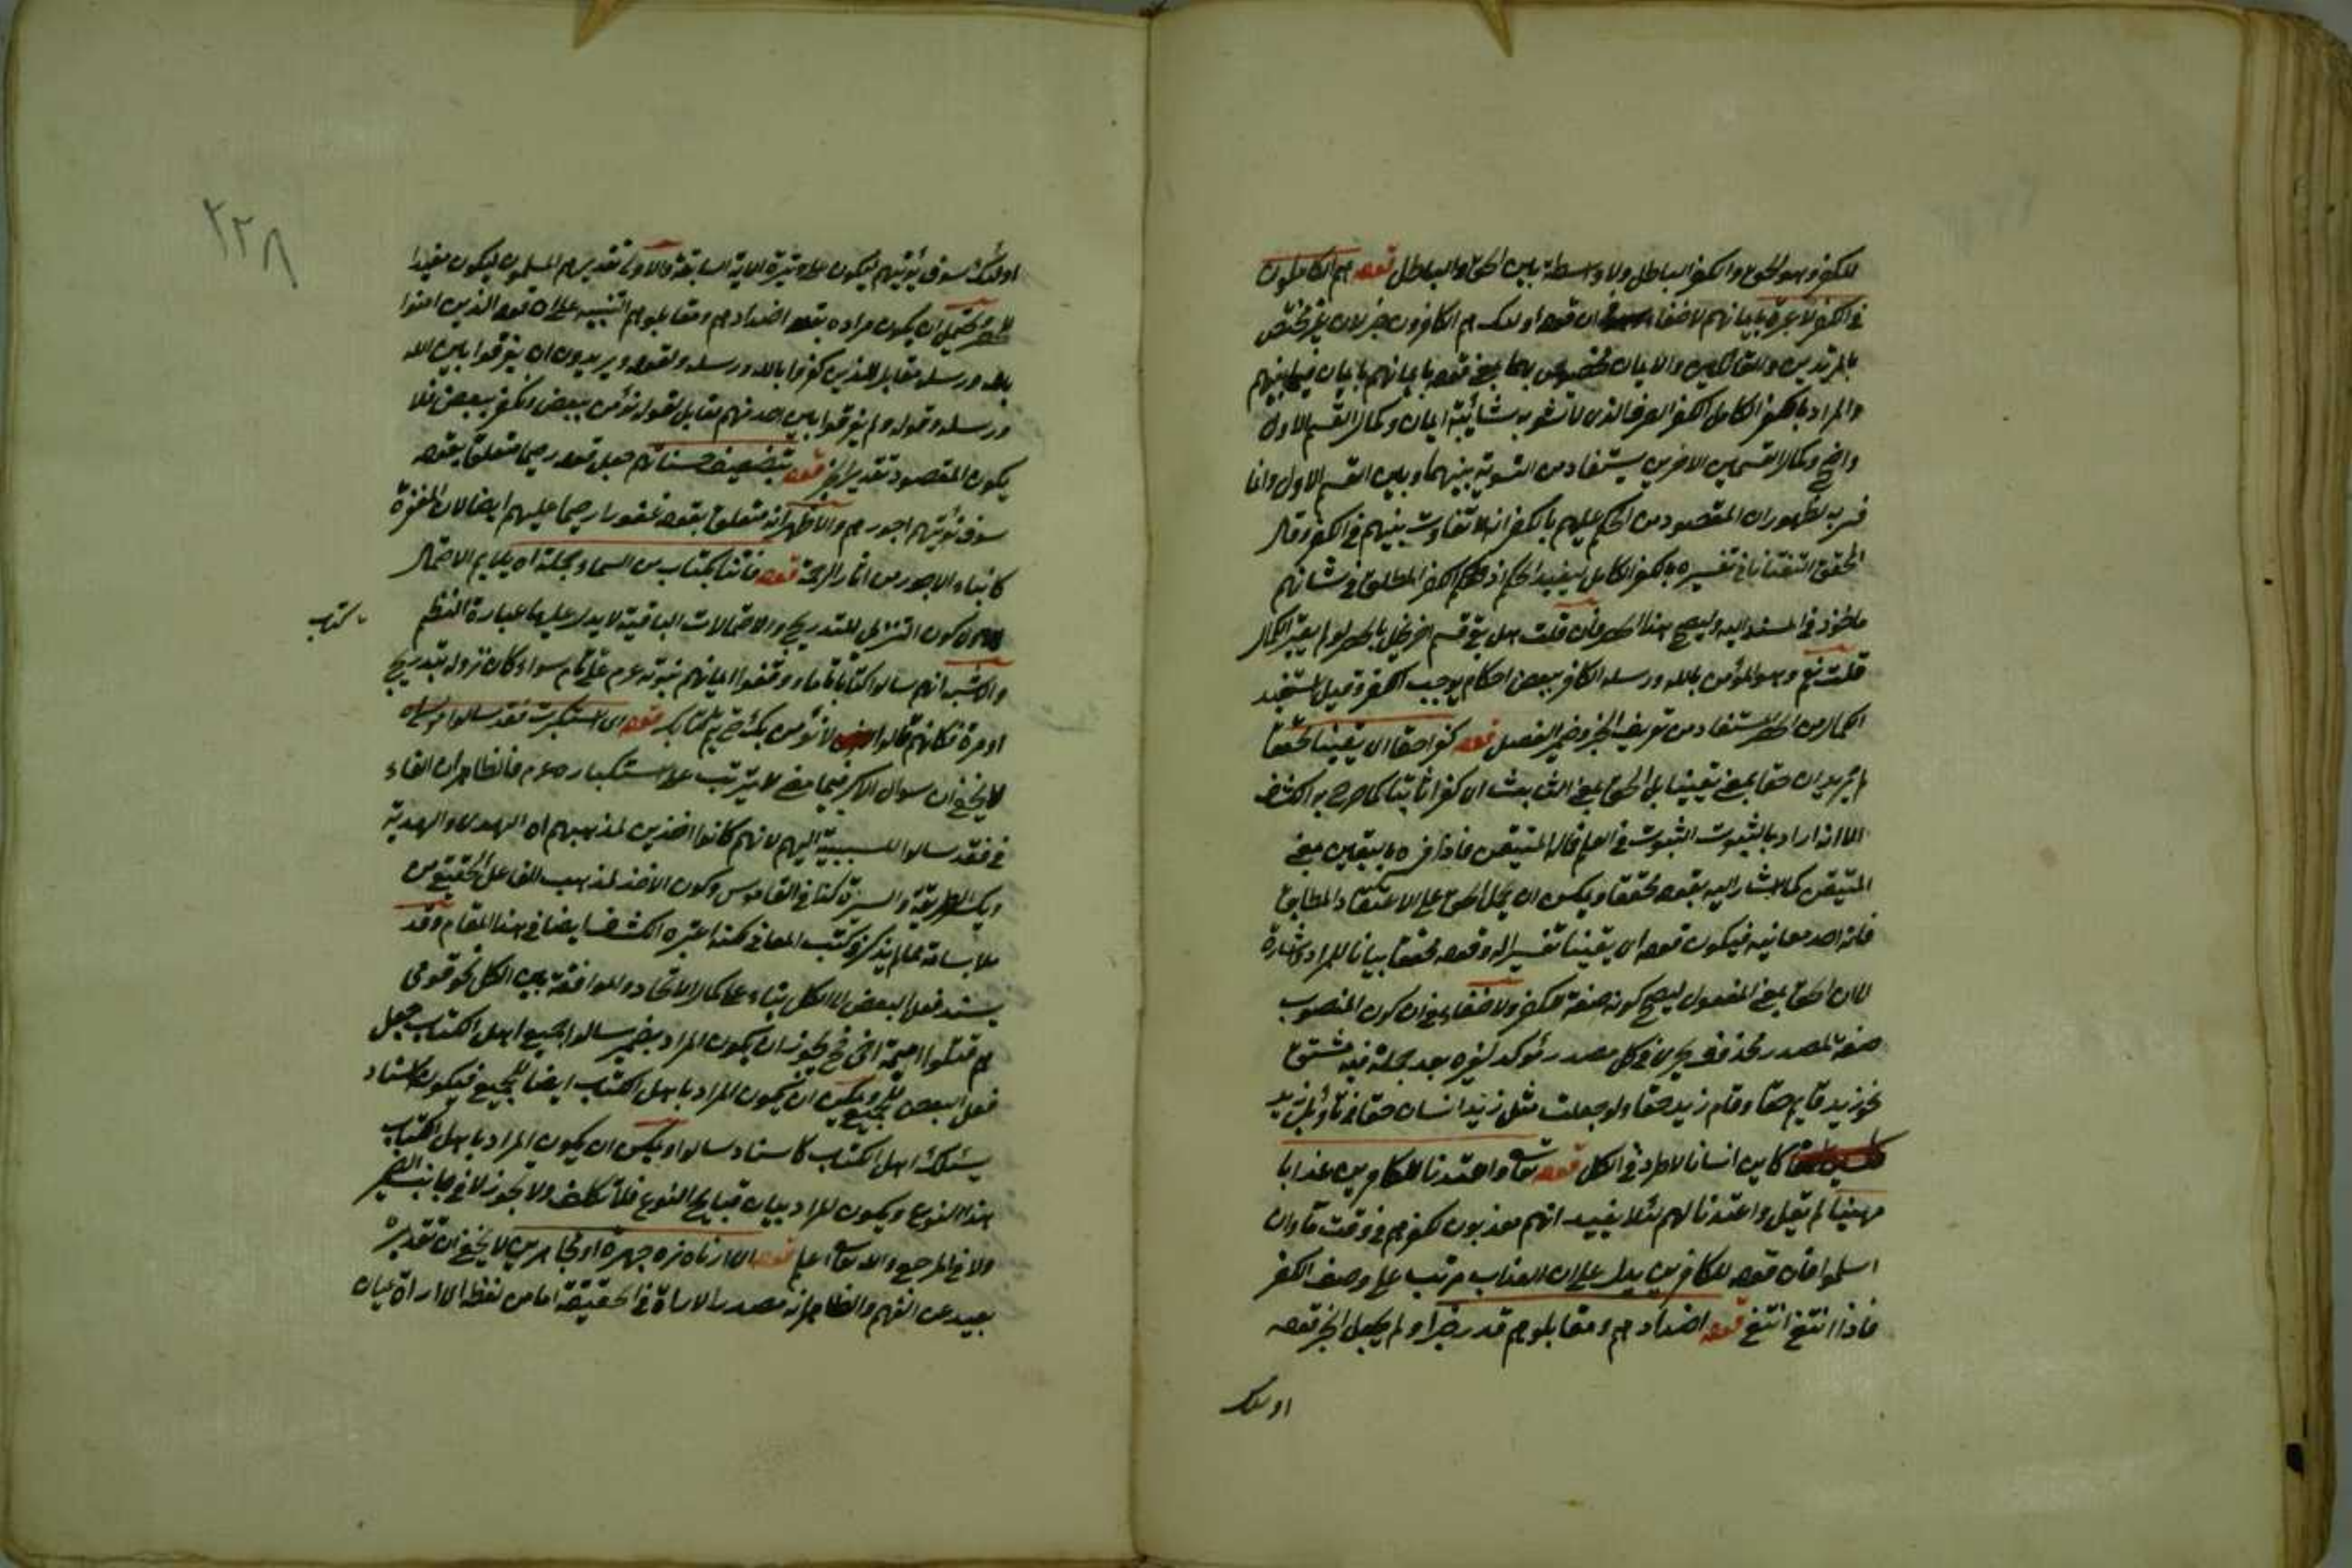 للكفر وهو الحق والكفر الباطل ولا واسطة بين الحق والباطل قوله هم الكاملون
في الكفر لا عبرة بايمانهم لا خفاء ان قوله اولئك هم الكافرون خبر لان
بالمرتدين والايمان مختص بهما قوله بايمانهم بايمان فيما بينهم
والمراد بالكفر الكامل الكفر الصرف الذي لا تشوبه شائبة ايمان وكمال القسم الاول
واضح وكمال القسمين الاخرين يستفاد من التسوية بينهما وبين القسم الاول وانما
فسر به لظهور ان المقصود من الحكم عليهم بالكفر انه لا تفاوت بينهم في الكفر وقال
المحقق التفتازاني تفسيره بالكفر الكامل ليفيد الحكم اذ الكفر المطلق في شانهم
ماخوذ في المسند اليه وليصح هذا الحصر فان قلت هل بقي قسم اخر يخل بالحصر لو لم يعتبر الكمال
قلت نعم وهو المؤمن بالله ورسله الكافر ببعض احكام يوجب الكفر وقيل استفيد
الكمال من الحصر المستفاد من تعريف الخبر وضمير الفصل قوله كفرا حقا اي يقينا محققا
لم يرد ان حقا بمعنى يقينا بل الحق بمعنى الثابت اي كفرا ثابتا كما صرح به الكشاف
الا انه اراد بالثبوت الثبوت في العلم قال المتيقن فلذا فسره باليقين بمعنى
المتيقن كما اشار اليه بقوله محققا ويمكن ان يحمل الحق على الاعتقاد المطابق
فانه احد معانيه فيكون قوله اي يقينا تفسيرا له وقوله محققا بيانا للمراد اشارة
لان الحق بمعنى المفعول ليصح كونه صفة للكفر ولا خفاء في ان كون المنصوب
صفة لمصدر محذوف يجري في كل مصدر مؤكد لغيره بعد جملة فيه مشتق
نحو زيد قايم حقا وقام زيد حقا ولو جعلت مثل زيد انسان حقا في تاويل زيد
كاين انسانا لاطرد في الكل قوله تعالى واعتدنا للكافرين عذابا
مهينا لم يقل واعتدنا لهم لئلا يفيد انهم معذبون لكفرهم في وقت ما وان
اسلموا فان قوله للكافرين يدل على ان العذاب مرتب على وصف الكفر
فاذا انتفى انتفى قوله اضدادهم ومقابلوهم قدر خبرا ولم يجعل الخبر قوله
اولئك
٢٢٨
اولئك سوف يؤتيهم ليكون على وتيرة الاية السابقة والاولى تقديرهم المسلمون ليكون مفيدا
للحصر ويحتمل ان يكون مراده بقوله اضدادهم ومقابلوهم التنبيه على ان قوله الذين امنوا
بالله ورسله مقابل للذين كفروا بالله ورسله ولقوله ويريدون ان يفرقوا بين الله
ورسله وقوله ولم يفرقوا بين احد منهم مقابل لقوله نؤمن ببعض ونكفر ببعض فلا
يكون المقصود تقدير الخبر قوله بتضعيف حسناتهم جعل قوله رحيما متعلقا بقوله
سوف نؤتيهم اجورهم والاظهر انه متعلق بقوله غفورا رحيما عليهم ايضا لان المغفرة
كايتاء الاجور من اثار الرحمة قوله فاتنا بكتاب من السماء جملة اه يلايم الاحتمال
كون التنزيل للتدريج والاحتمالات الباقية لا يدل عليها عبارة النظم
كتاب
والاشبه انهم سالوا كتابا ما وقفوا ايمانهم بنبوته عم على تمام سواء كان نزوله بتدريج
او مرة فكانهم قالوا لا نؤمن بك حتى يتم كتابك قوله اي استكبرت فقد سالوا موسى اه
لا يخفى ان سوال الاكبر فيما مضى لا يترتب على استكباره عم فالظاهر ان الفاء
في فقد سالوا للسببية اليهم لانهم كانوا اخذين لمذهبهم اه الهدى والهدية
ويكسر الطريقة والسيرة كذا في القاموس وكون الاخذ لمذهب الفاعل الحقيقي من
ملابساته مما لم يذكره كتب المعاني لكنه اعتبره الكشاف ايضا في هذا المقام وقد
يسند فعل البعض الى الكل بناء على كمال الاتحاد والموافقة بين الكل نحو قومي
هم قتلوا اميمة اخي فيجوز ان يكون المراد بضمير سالوا جميع اهل الكتاب جعل
فعل البعض للجميع ويمكن ان يكون المراد باهل الكتاب ايضا الجميع فيكون اسناد
يسئلك اهل الكتاب كاسناد سالوا ويمكن ان يكون المراد باهل الكتاب
هذا النوع ويكون المراد بيان قبايح النوع فلا تكلف ولا تجوز لا في جانب الضمير
ولا في المرجع والله تعالى اعلم قوله اي ارناه نره جهرة او مجاهرين لا يخفى ان تقدير
بعيد عن الفهم والظاهر انه مصدر الاراة في الحقيقة اما من لفظه اي اراة عيان